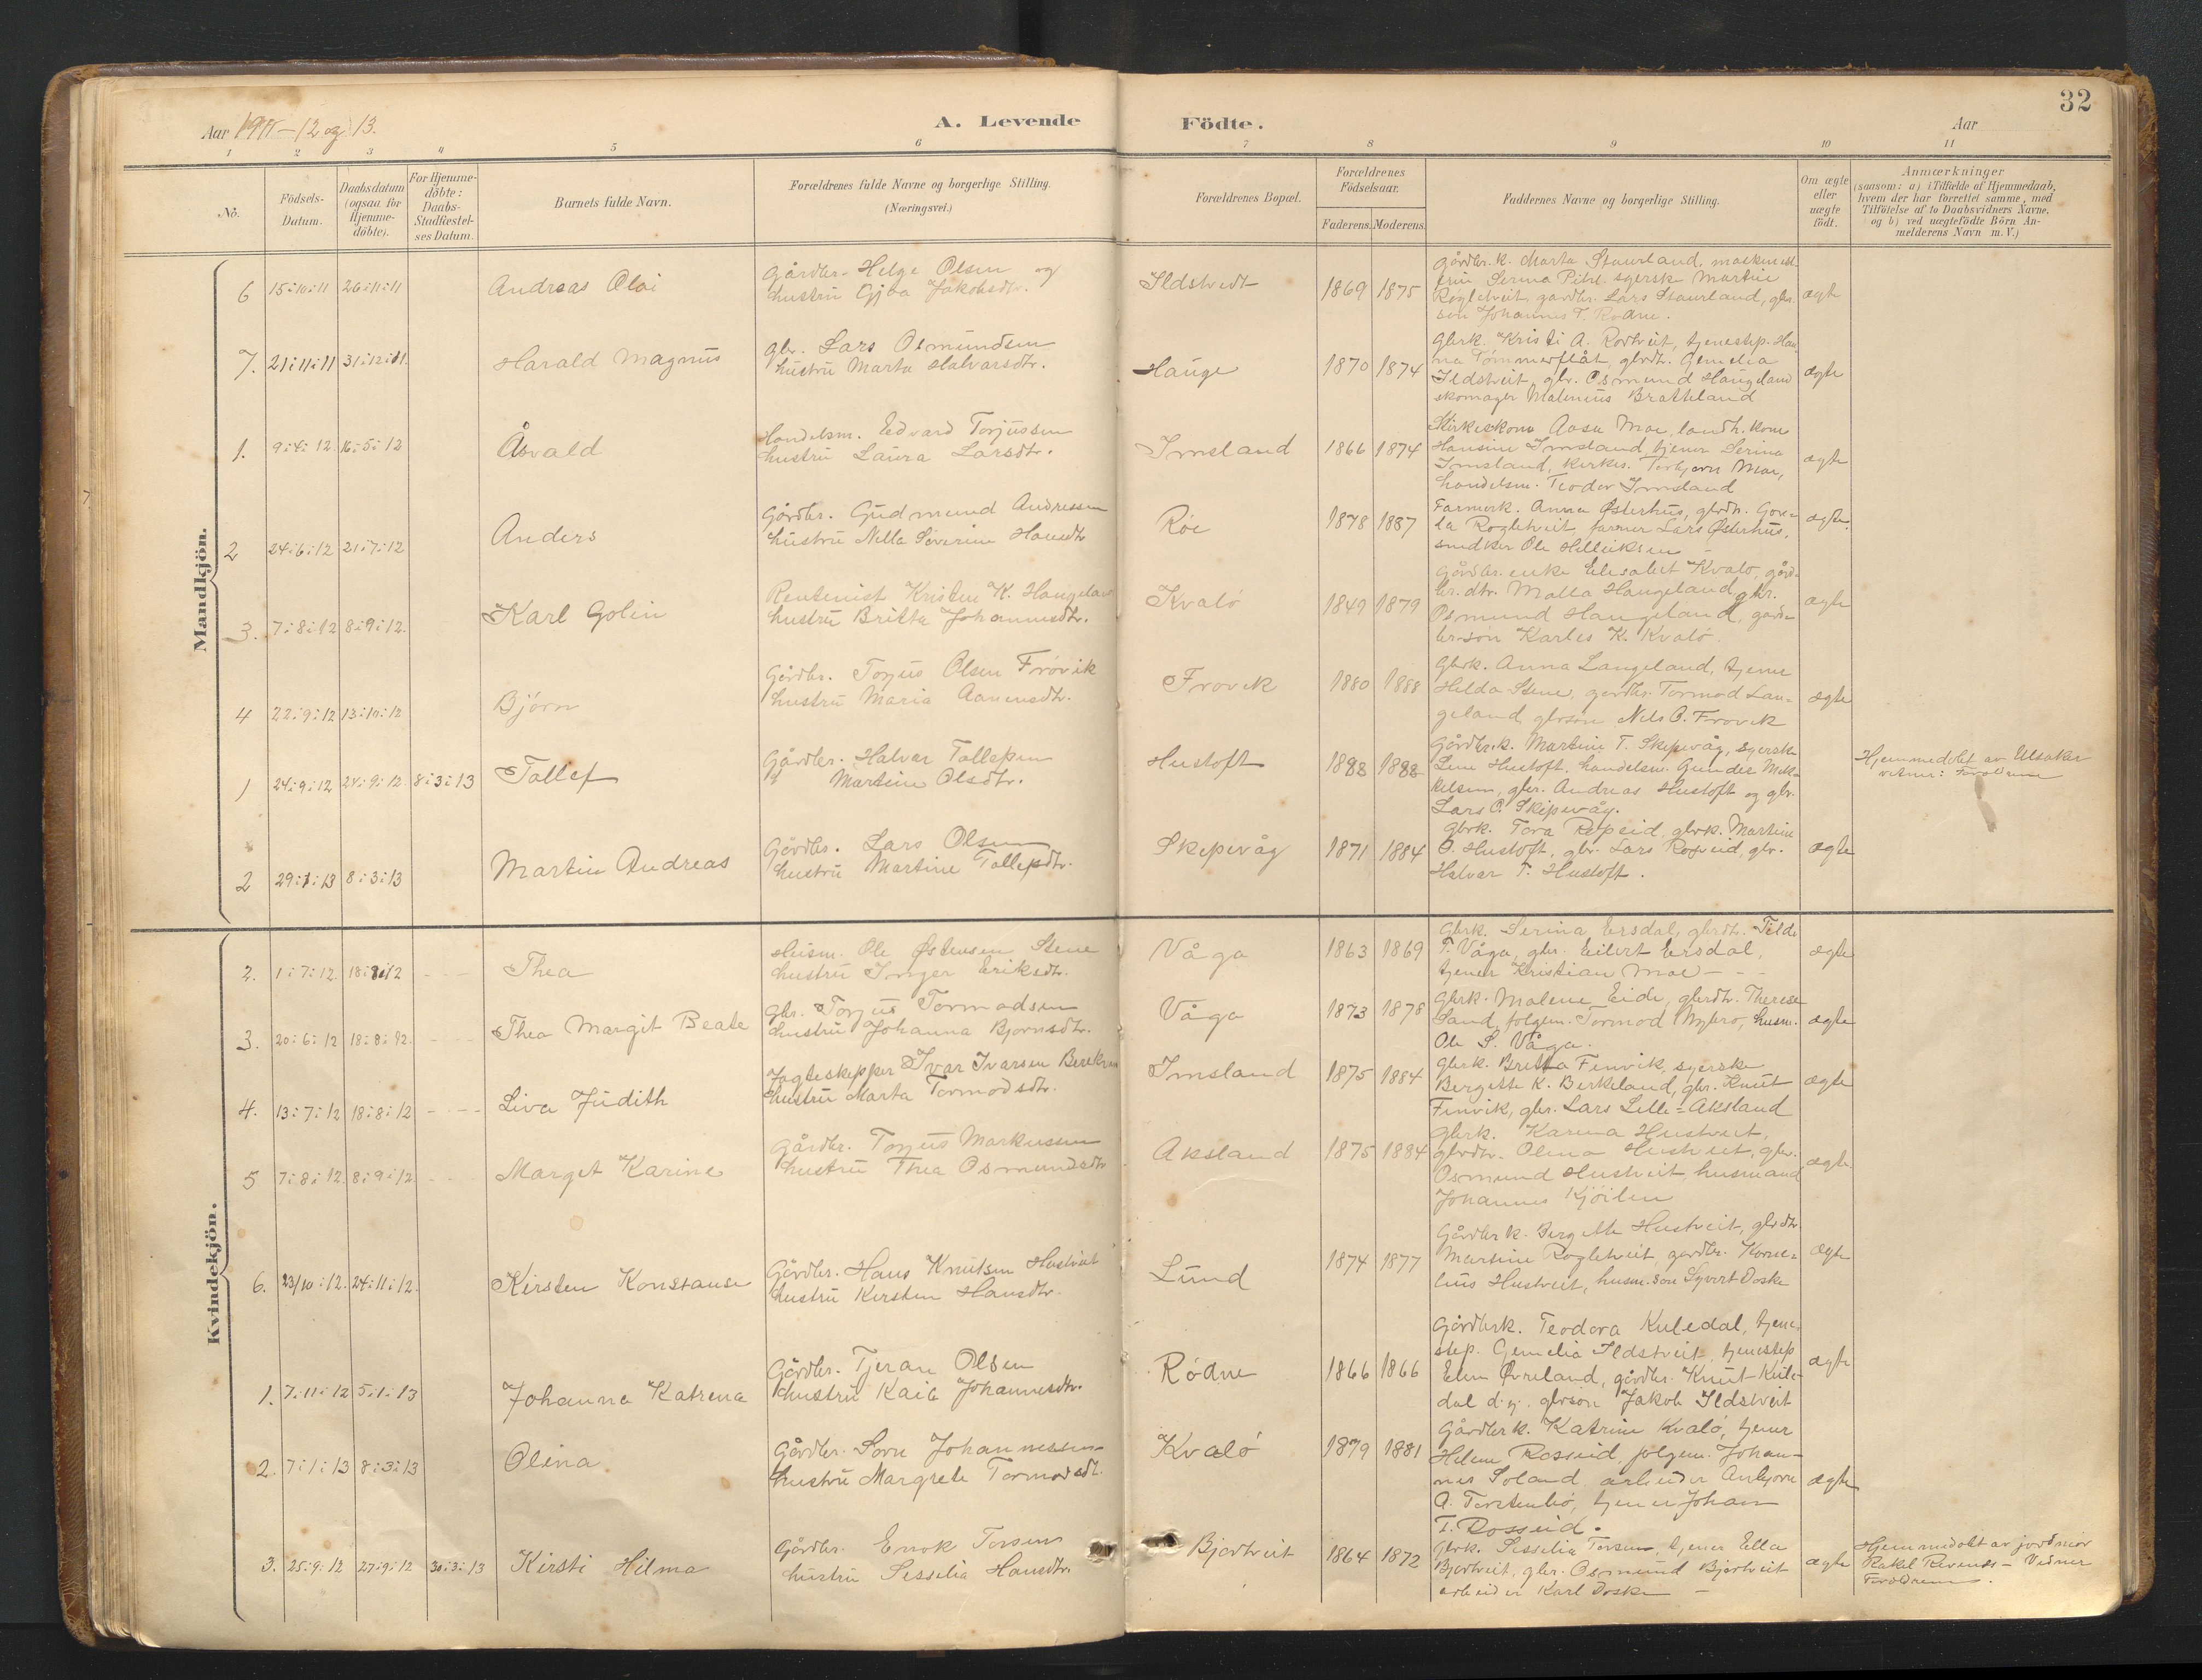 32
Aar 1911-12 og 13.
A. Levende Födte.
Aar
1 2 3 4 5 6 7 8 9 10 11
No.
Födsels-
Datum.
Daabsdatum
(ogsaa for
Hjemme-
döbte).
For Hjemme-
döbte:
Daabs-
Stadfæstel-
ses Datum.
Barnets fulde Navn.
Forældrenes fulde Navne og borgerlige Stilling.
(Næringsvei.)
Forældrenes Bopæl.
Forældrenes
Födselsaar.
Faderens. Moderens.
Faddernes Navne og borgerlige Stilling.
Om ægte
eller
uægte
födt.
Anmærkninger
(saasom: a) i Tilfælde af Hjemmedaab,
hvem der har forrettet samme, med
Tilföielse af to Daabsvidners Navne,
og b) ved uægtefödte Börn An-
melderens Navn m. V.)
Mandkjön.
6 15:10:11 26:11:11 Andreas Olai
Gårdbr. Helge Olsen og
hustru Jakobsdtr.
Ildstveit 1869 1875
Gårdbr.k. Marta Staurland,
Serina syerske Martine
Rogletveit, gardbr. Lars Staurland, gbr.
son Johannes T. Rødne.
ægte
7. 21:11:11 31:12:11. Harald Magnus
gbr. Lars Osmundsen
hustru Marta Halvarsdtr.
Hauge 1870 1874
Gbrk. Kristi A. Rodtveit, tjenestep. Han-
na Tømmerflåt, gbrdt. Gemelia
Ildstveit, gbr. Osmund Haugeland
skomager Malenius Bratteland
ægte
1. 9:4:12 16:5:12 Åsvald
Handelsm. Edvard Torjussen
hustru Laura Larsdtr.
Imsland 1866 1874
Kirkes.kone Aasa Moe, landh.kone
Hansine Imsland, tjener Serina
Imsland, kirkes. Torbjørn Moe,
handelsm. Teodor Imsland
ægte
2 24:6:12 21:7:12 Anders
Gårdbr. Gudmund Andressen
hustru Nella Severine Hansdtr
Røe 1878 1887
Farmerk. Anna Østerhus, gbrdtr.
Rogletveit, farmer Lars Østerhus,
snedker Ole Helliksen
ægte.
3. 7:8:12 8:9:12. Karl Golin
Rentenist Kristen K. Haugeland
hustru Britta Johannesdtr.
Kvalö 1849 1879
Gårdbr. enke Elisabet Kvalö, gård-
br.dtr. Malla Haugeland, gbr.
Osmund Haugeland, gård-
br.søn Karles K. Kvalö.
ægte
4 22:9:12 13:10:12 Björn
Gårdbr. Torjus Olsen Frövik
hustru Maria Aanensdtr.
Frövik 1880 1888
Gbrk. Anna Langeland, tjene
Helda Stene, gardbr. Tormod Lan-
geland, gbrsøn Nels O. Frövik
ægte
1 24:9:12 24:9:12 8:3:13 Tallef
Gårdbr. Halvar Tallefsen
Martine Olsdtr.
Hustoft 1888 1888
Gårdbr.k. Martine T. Skipevåg, syersk
Lene Hustoft, handelsm. Gunder Mik-
kelsen, gbr. Andreas Hustoft og gbr.
Lars O. Skipevåg.
Hjemmedøbt av Utsaker
vidner: Forældrene
2 29:1:13 8:3:13 Martin Andreas
Gårdbr. Lars Olsen
hustru Martine Tallefsdtr.
Skipevåg 1871 1884
Gbrk. Tora Ropeid, gbrk. Martine
O. Hustoft, gbr. Lars Ropeid, gbr.
Halvar T. Hustoft.
ægte
Kvindekjön.
2. 1:7:12. 18:8:12 Thea
Husm. Ole Østensen Stene
hustru Inger Eriksdtr.
Våga 1863 1869
Gbrk. Serina Eersdal, gbrdtr. Tilda
T. Våga, gbr. Eilert Eersdal,
tjener Kristian Moe
ægte
3. 20:6:12 18:8:12. Thea Margit Beate
Gbr. Torjus Tormodsen
hustru Johanna Bjørnsdtr.
Våga 1873 1878
Gbrk. Malene Eide, gbrdtr. Therese
Sand, folgem. Tormod Nybrø, husm.
Ole S. Våga.
ægte
4. 13:7:12 18:8:12 Liva Judith
Jagteskipper Ivar Ivarsen
hustru Marta Tormodsdtr.
Imsland 1875 1884
Gbrk. Britta Finvik, syerske
Bergitte K. Berkeland, gbr. Knut
Finvik, gbr. Lars Lille-Aksland
ægte
5 7:8:12. 8:9:12. Marget Karine
Gårdbr. Torjus Markussen
hustru Thea Osmundsdtr
Aksland 1875 1884
Gbrk. Karina Hustveit,
gbrdtr. Olena Hustveit, gbr.
Osmund Hustveit, husmand
Johannes Kjöilen
ægte.
6. 23/10:12. 24:11:12. Kirsten Konstanse
Gårdbr. Hans Knutsen Hustveit
hustru Kirsten Hansdtr.
Lund 1874 1877
Gårdbrk. Bergitte Hustveit, gbrdtr
Martine Rogletveit, gardbr. Korne-
lius Hustveit, husm.søn Syvert Doske
ægte
1. 7:11:12 5:1:13 Johanna Katrena
Gårdbr. Tjeran Olsen
hustru Kaia Johannesdtr.
Rödne 1866 1866
Gårdbrk. Teodora Kuledal, tjene-
step. Gemelia Ildstveit, tjenestep
Elen Øvreland, gårdbr. Knut Kule-
dal d.y. gbrsøn Jakob Ildstveit
ægte
2. 7:1:13 8:3:13 Olina
Gårdbr. Johannessen
hustru Margrete Tormodsdt.
Kvalö 1879 1881
Gårdbrk. Katrine Kvalö, tjener
Helene Rosseid, folgem. Johan-
nes Soland, arbeider Anbjørn
A. Torstenbö, tjener Johan
T. Rosseid.
ægte
3. 25:9:12 27:9:12 30:3:13 Kirsti Hilma
Gårdbr. Enok Torsen
hustru Sesselia Hansdtr.
Bjortveit 1864 1872
Gbrk. Sesselia Torsen, tjener Ella
Bjortveit, gbr. Osmund Bjortveit
arbeider Karl Doske
ægte
Hjemmedøbt av jordmor
Rakel - Vidner
Forældrene.